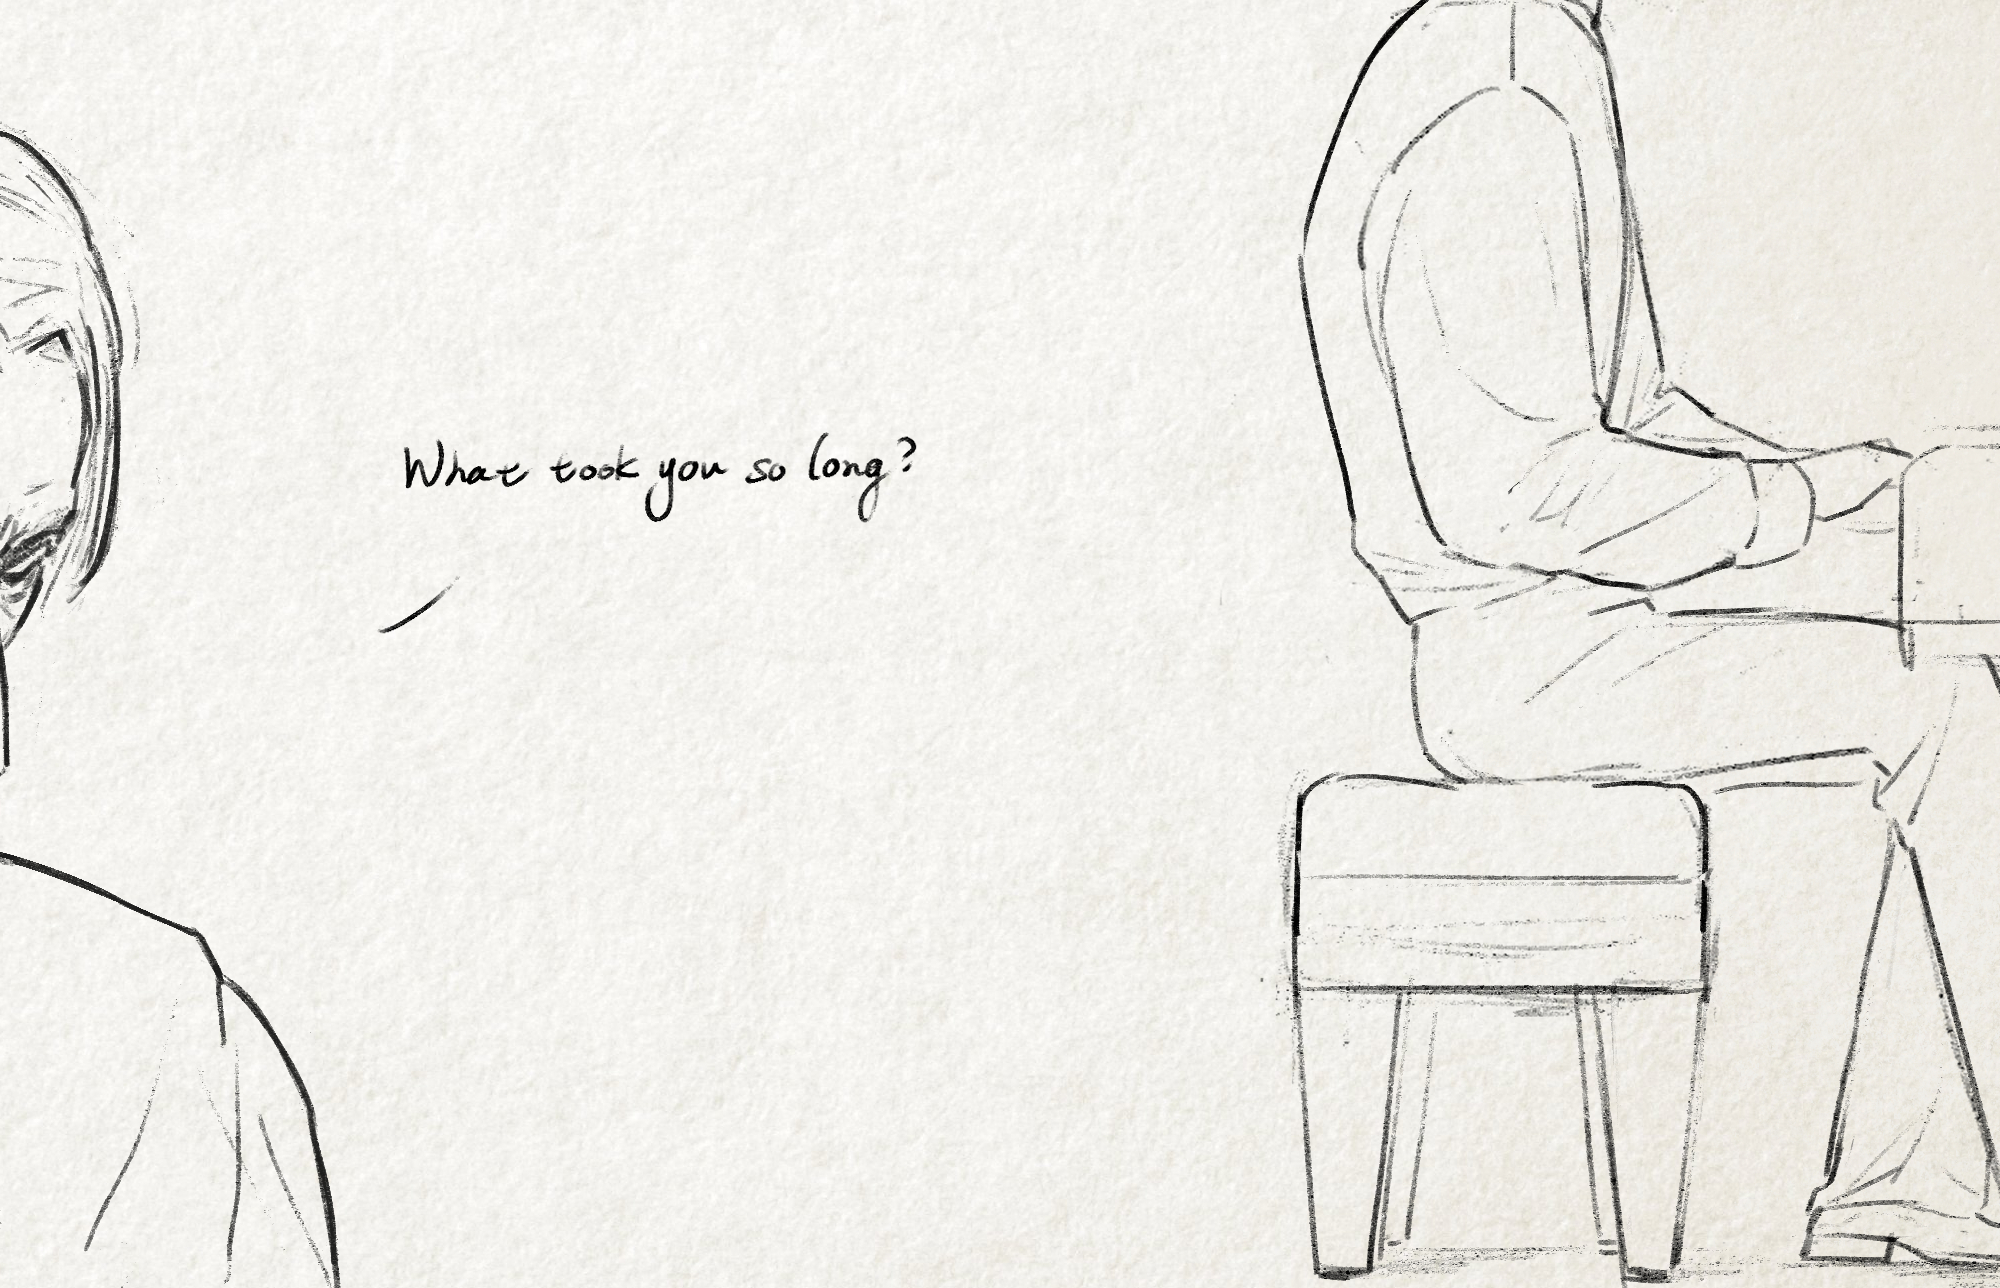 What took you so long?